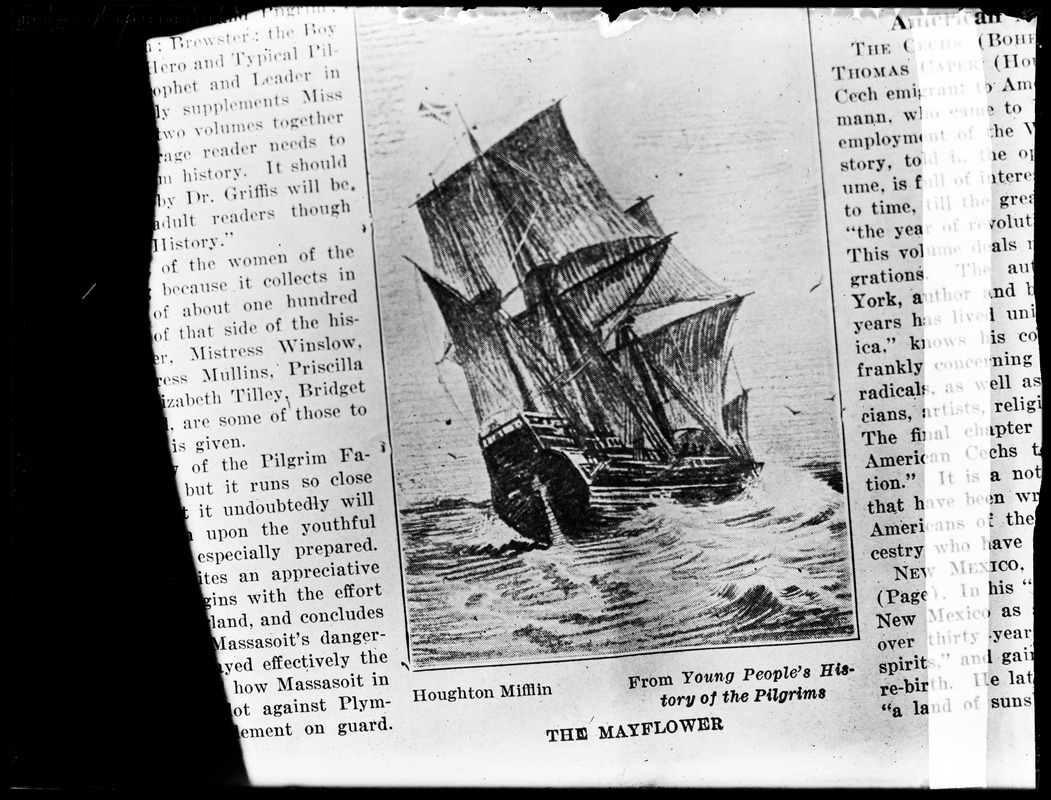 Pilgrim:
: Brewster: the Boy
Hero and Typical Pil-
ophet and Leader in
ly supplements Miss
two volumes together
rage reader needs to
n history. It should
by Dr. Griffis will be,
adult readers though
History."
of the women of the
because it collects in
of about one hundred
of that side of the his-
er, Mistress Winslow,
ress Mullins, Priscilla
izabeth Tilley, Bridget
, are some of those to
is given.
of the Pilgrim Fa-
but it runs so close
t it undoubtedly will
upon the youthful
especially prepared.
ites an appreciative
gins with the effort
land, and concludes
Massasoit's danger-
ayed effectively the
how Massasoit in
lot against Plym-
ement on guard.
Houghton Mifflin
From Young People's His-
tory of the Pilgrims
THE MAYFLOWER
American
THE CECHS (BOHE
THOMAS CAPEK (Hou
Cech emigrant to Ame
mann, who came to
employment of the W
story, told in the op
ume, is full of intere
to time, till the grea
"the year of revoluti
This volume deals
grations. The aut
York, author and b
years has lived uni
ica," knows his co
frankly concerning
radicals, as well as
cians, artists, religi
The final chapter
American Cechs t
tion." It is a not
that have been wr
Americans of the
cestry who have
NEW MEXICO,
(Page). In his "
New Mexico as
over thirty year
spirits," and gai
re-birth. He lat
"a land of suns